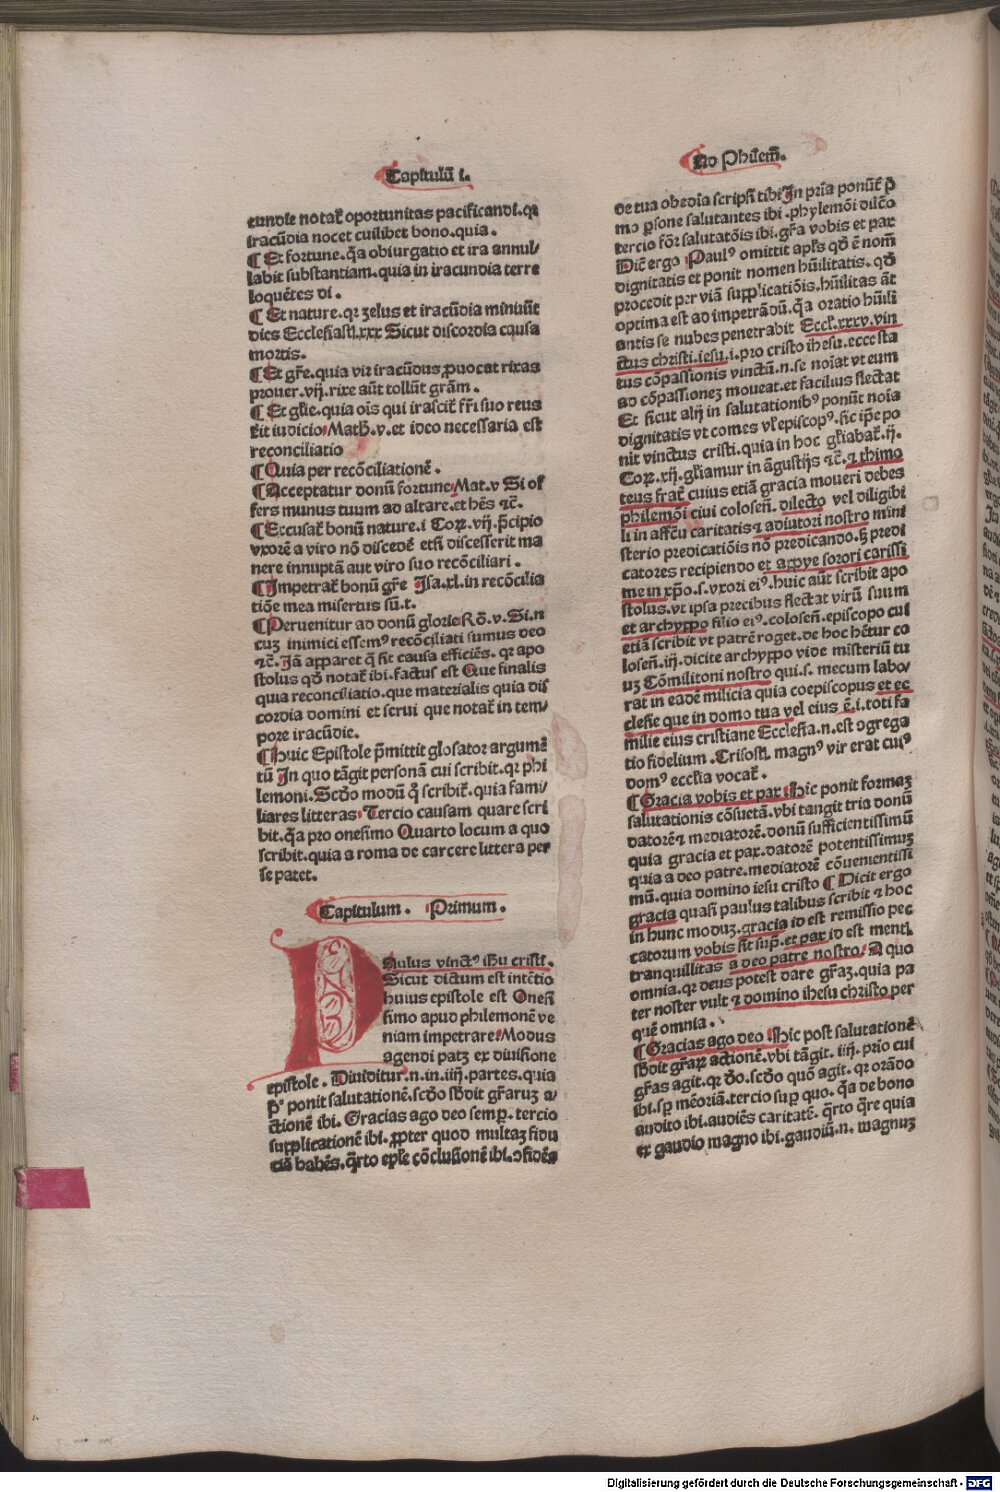 Capitulū i.
cundie notat᷑ oportunitas pacificandi.qꝛ
iracūdia nocet cuilibet bono.quia.
¶ Et fortune.q̄a obiurgatio et ira annul/
labit substantiam.quia in iracundia terre
loquētes di.
¶ Et nature.qꝛ zelus et iracūdia minuūt
dies Ecclesiasti.xxx Sicut discordia causa
mortis.
¶ Et gr̄e.quia vir iracūdus ꝓuocat rixas
prouer.vij.rixe aūt tollūt grām.
¶ Et gl̄ie.quia oīs qui irascit᷑ fr̄i suo reus
erit iudicio Math̄.v.et ideo necessaria est
reconciliatio
¶ Quia per recōciliationē.
¶ Acceptatur donū fortune Mat.v Si of
fers munus tuum ad altare.et hēs ⁊c̄.
¶ Excusat᷑ bonū nature.i Coꝝ.vij.p̄cipio
vxorē a viro nō discedē etsi discesserit ma
nere innuptā aut viro suo recōciliari.
¶ Impetrat᷑ bonū gr̄e Isa.xl.in recōcilia
tiōe mea misertus sū.t.
¶ Peruenitur ad donū glorie Rō.v.Si.n
cuꝫ inimici essemꝰ recōciliati sumus deo
⁊c̄.Iā apparet q̄ sit causa efficiēs.qꝛ apo
stolus qd̄ notat᷑ ibi.factus est Que finalis
quia reconciliatio.que materialis quia dis
cordia domini et serui que notat᷑ in tem/
pore iracūdie.
¶ Huic Epistole p̄mittit glosator argumē
tū In quo tāgit personā cui scribit.qꝛ phi
lemoni.Scd̄o modū q̊ scribit᷑.quia fami/
liares litteras Tercio causam quare scri
bit.q̄a pro onesimo Quarto locum a quo
scribit.quia a roma de carcere littera per
se patet.
Capitulum. Primum.
PAulus vinctꝰ ih̄u cristi.
Sicut dictum est intētio
huius epistole est Onesi
simo apud philemonē ve
niam impetrare Modus
agendi patꝫ ex diuisione
epistole. Diuiditur.n.in.iiij.partes.quia
pº ponit salutationē.scd̄o sb̄dit gr̄aruꝫ a/
ctionē ibi.Gracias ago deo semp̱.tercio
supplicationē ibi.ꝓpter quod multaꝫ fidu
ciā habēs.q̄rto ep̄le cōclusionē ibi.ↄfidēs
Ad Philem̄.
de tua obedīa scripsi tibi In pr̄ia ponūt᷑ p̄
mo ꝑsone salutantes ibi.phylemōi dilc̄o
tercio fōr salutatōis ibi.gr̄a vobis et pax
Dic̄ ergo Paulꝰ omittit apl̄s qd̄ ē nom̄
dignitatis et ponit nomen hūilitatis.qd̄
procedit per viā supplicatiōis.hūilitas āt
optima est ad impetrādū.q̄a oratio hūili
antis se nubes penetrabit Eccl.xxxv.vin
ctus christi.iesu.i.pro cristo ihesu.ecce sta
tus cōpassionis vinctū.n.se noīat vt eum
ad cōpassionez moueat.et facilius flectat
Et sicut alij in salutationibꝰ ponūt noīa
dignitatis vt comes vl᷑ episcopꝰ.sic ip̄e po
nit vinctus cristi.quia in hoc gl̄iabat᷑.ij.
Coꝝ.xij.gl̄iamur in āgustijs ⁊c̄.⁊ thimo
teus frat᷑ cuius etiā gracia moueri debes
philemōi ciui colosen̄.dilecto vel diligibi
li in affc̄u caritatis ⁊ adiutori nostro mini
sterio predicatiōis nō predicando.sꝫ predi
catores recipiendo et appye sorori carissi
me in xp̄o.s.vxori eiꝰ.huic aūt scribit apo
stolus.vt ipsa precibus flectat virū suum
et archyppo filio eiꝰ.colosen̄.episcopo cui
etiā scribit vt patrē roget.de hoc hētur co
losen̄.iij.dicite archyppo vide misteriū tu
uꝫ Cōmilitoni nostro qui.s.mecum labo/
rat in eadē milicia quia coepiscopus et ec
clesie que in domo tua vel eius ē.i.toti fa
milie eius cristiane Ecclesia.n.est ↄgrega
tio fidelium.Crisosti.magnꝰ vir erat cuiꝰ
domꝰ ecclia vocat᷑.
¶ Gracia vobis et pax Hic ponit formaꝫ
salutationis cōsuetā.vbi tangit tria donū
datorē ⁊ mediatorē.donū sufficientissimū
quia gracia et pax.datorē potentissimuꝫ
quia a deo patre.mediatorē cōuenientissi
mū.quia domino iesu cristo ¶ Dicit ergo
gracia quasi paulus talibus scribit ⁊ hoc
in hunc moduꝫ.gracia id est remissio pec
catorum vobis sit sup̄.et pax id est menti.
tranquillitas a deo patre nostro.A quo
omnia.qꝛ deus potest dare gr̄aꝫ.quia pa
ter noster vult ⁊ domino ihesu christo per
quē omnia.
¶ Gracias ago deo Hic post salutationē
sb̄dit gr̄aꝝ actionē.vbi tāgit.iiij.prīo cui
gr̄as agit.qꝛ d̄o.scd̄o quō agit.qꝛ orādo
ibi.sp̱ mēoriā.tercio sup̱ quo.q̄a de bono
audito ibi.audiēs caritatē.q̄rto q̄re quia
ex gaudio magno ibi.gaudiū.n.magnuꝫ
Digitalisierung gefördert durch die Deutsche Forschungsgemeinschaft - DFG